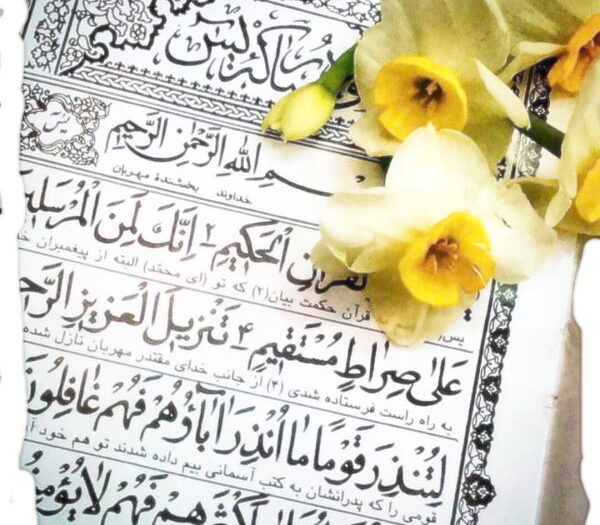 مبارکه یس
بِسْمِ اللهِ الرَّحْمٰنِ الرَّحيمِ
خداوند بخشندهٔ مهربان
الْقُرْآنِ الْحَكيمِ ۲ اِنَّكَ لَمِنَ الْمُرْسَلينَ
یس قرآن حکمت بیان(۲) که تو (ای محمّد) البته از پیغمبران
عَلىٰ صِراطٍ مُسْتَقيمٍ ۴ تَنْزيلَ الْعَزيزِ
به راه راست فرستاده شدی (۴) از جانب خدای مقتدر مهربان نازل شده
لِتُنْذِرَ قَوْماً ما اُنْذِرَ اٰباؤُهُمْ فَهُمْ غافِلُونَ
قومی را که پدرانشان به کتب آسمانی بیم داده شدند تو هم خود
اَكْثَرِهِمْ فَهُمْ لا